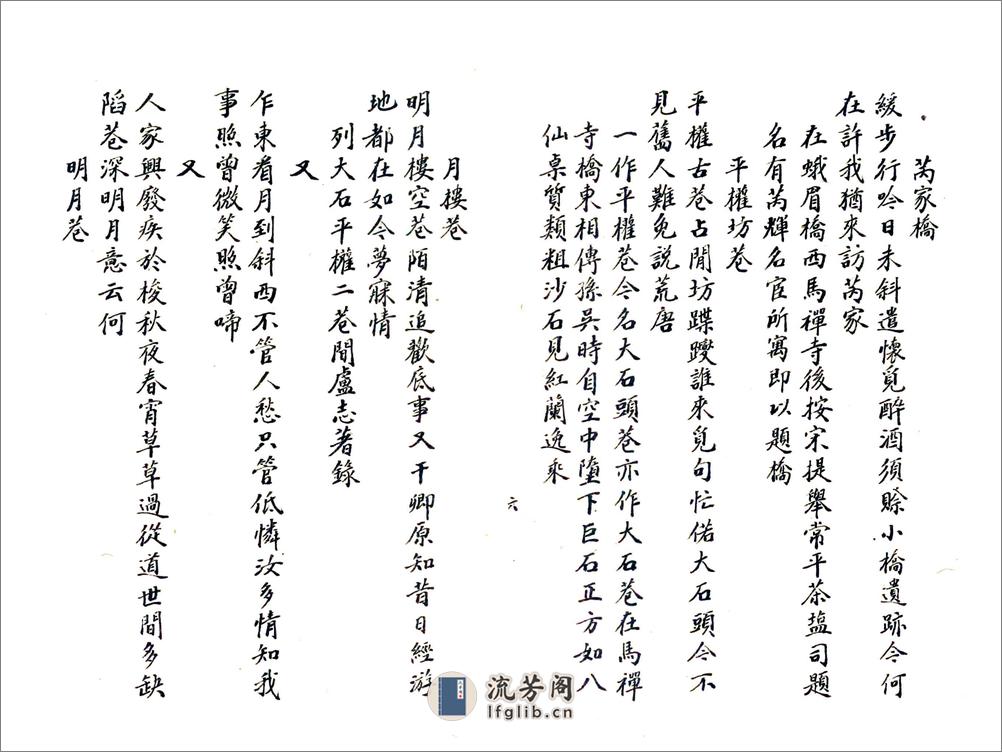 芮家橋
緩步行吟日未斜遣懷覓醉酒須賒小橋遺跡今何
在許我猶來訪芮家
在蛾眉橋西馬禪寺後按宋提舉常平茶鹽司題
名有芮輝名宦所寓即以題橋
平權坊巷
平權古巷占閒坊蹀躞誰來覓句忙偌大石頭今不
見舊人難免説荒唐
一作平權巷今名大石頭巷亦作大石巷在馬禪
寺橋東相傳孫吳時自空中墮下巨石正方如八
仙桌質類粗沙石見紅蘭逸乘
六
月樓巷
明月樓空巷陌清追歡底事又干卿原知昔日經游
地都在如今夢寐情
列大石平權二巷間盧志著錄
又
乍東看月到斜西不管人愁只管低憐汝多情知我
事照曾微笑照曾啼
又
人家興廢疾於梭秋夜春宵草草過從道世間多缺
陷巷深明月意云何
明月巷
流芳阁
lfglib.cn